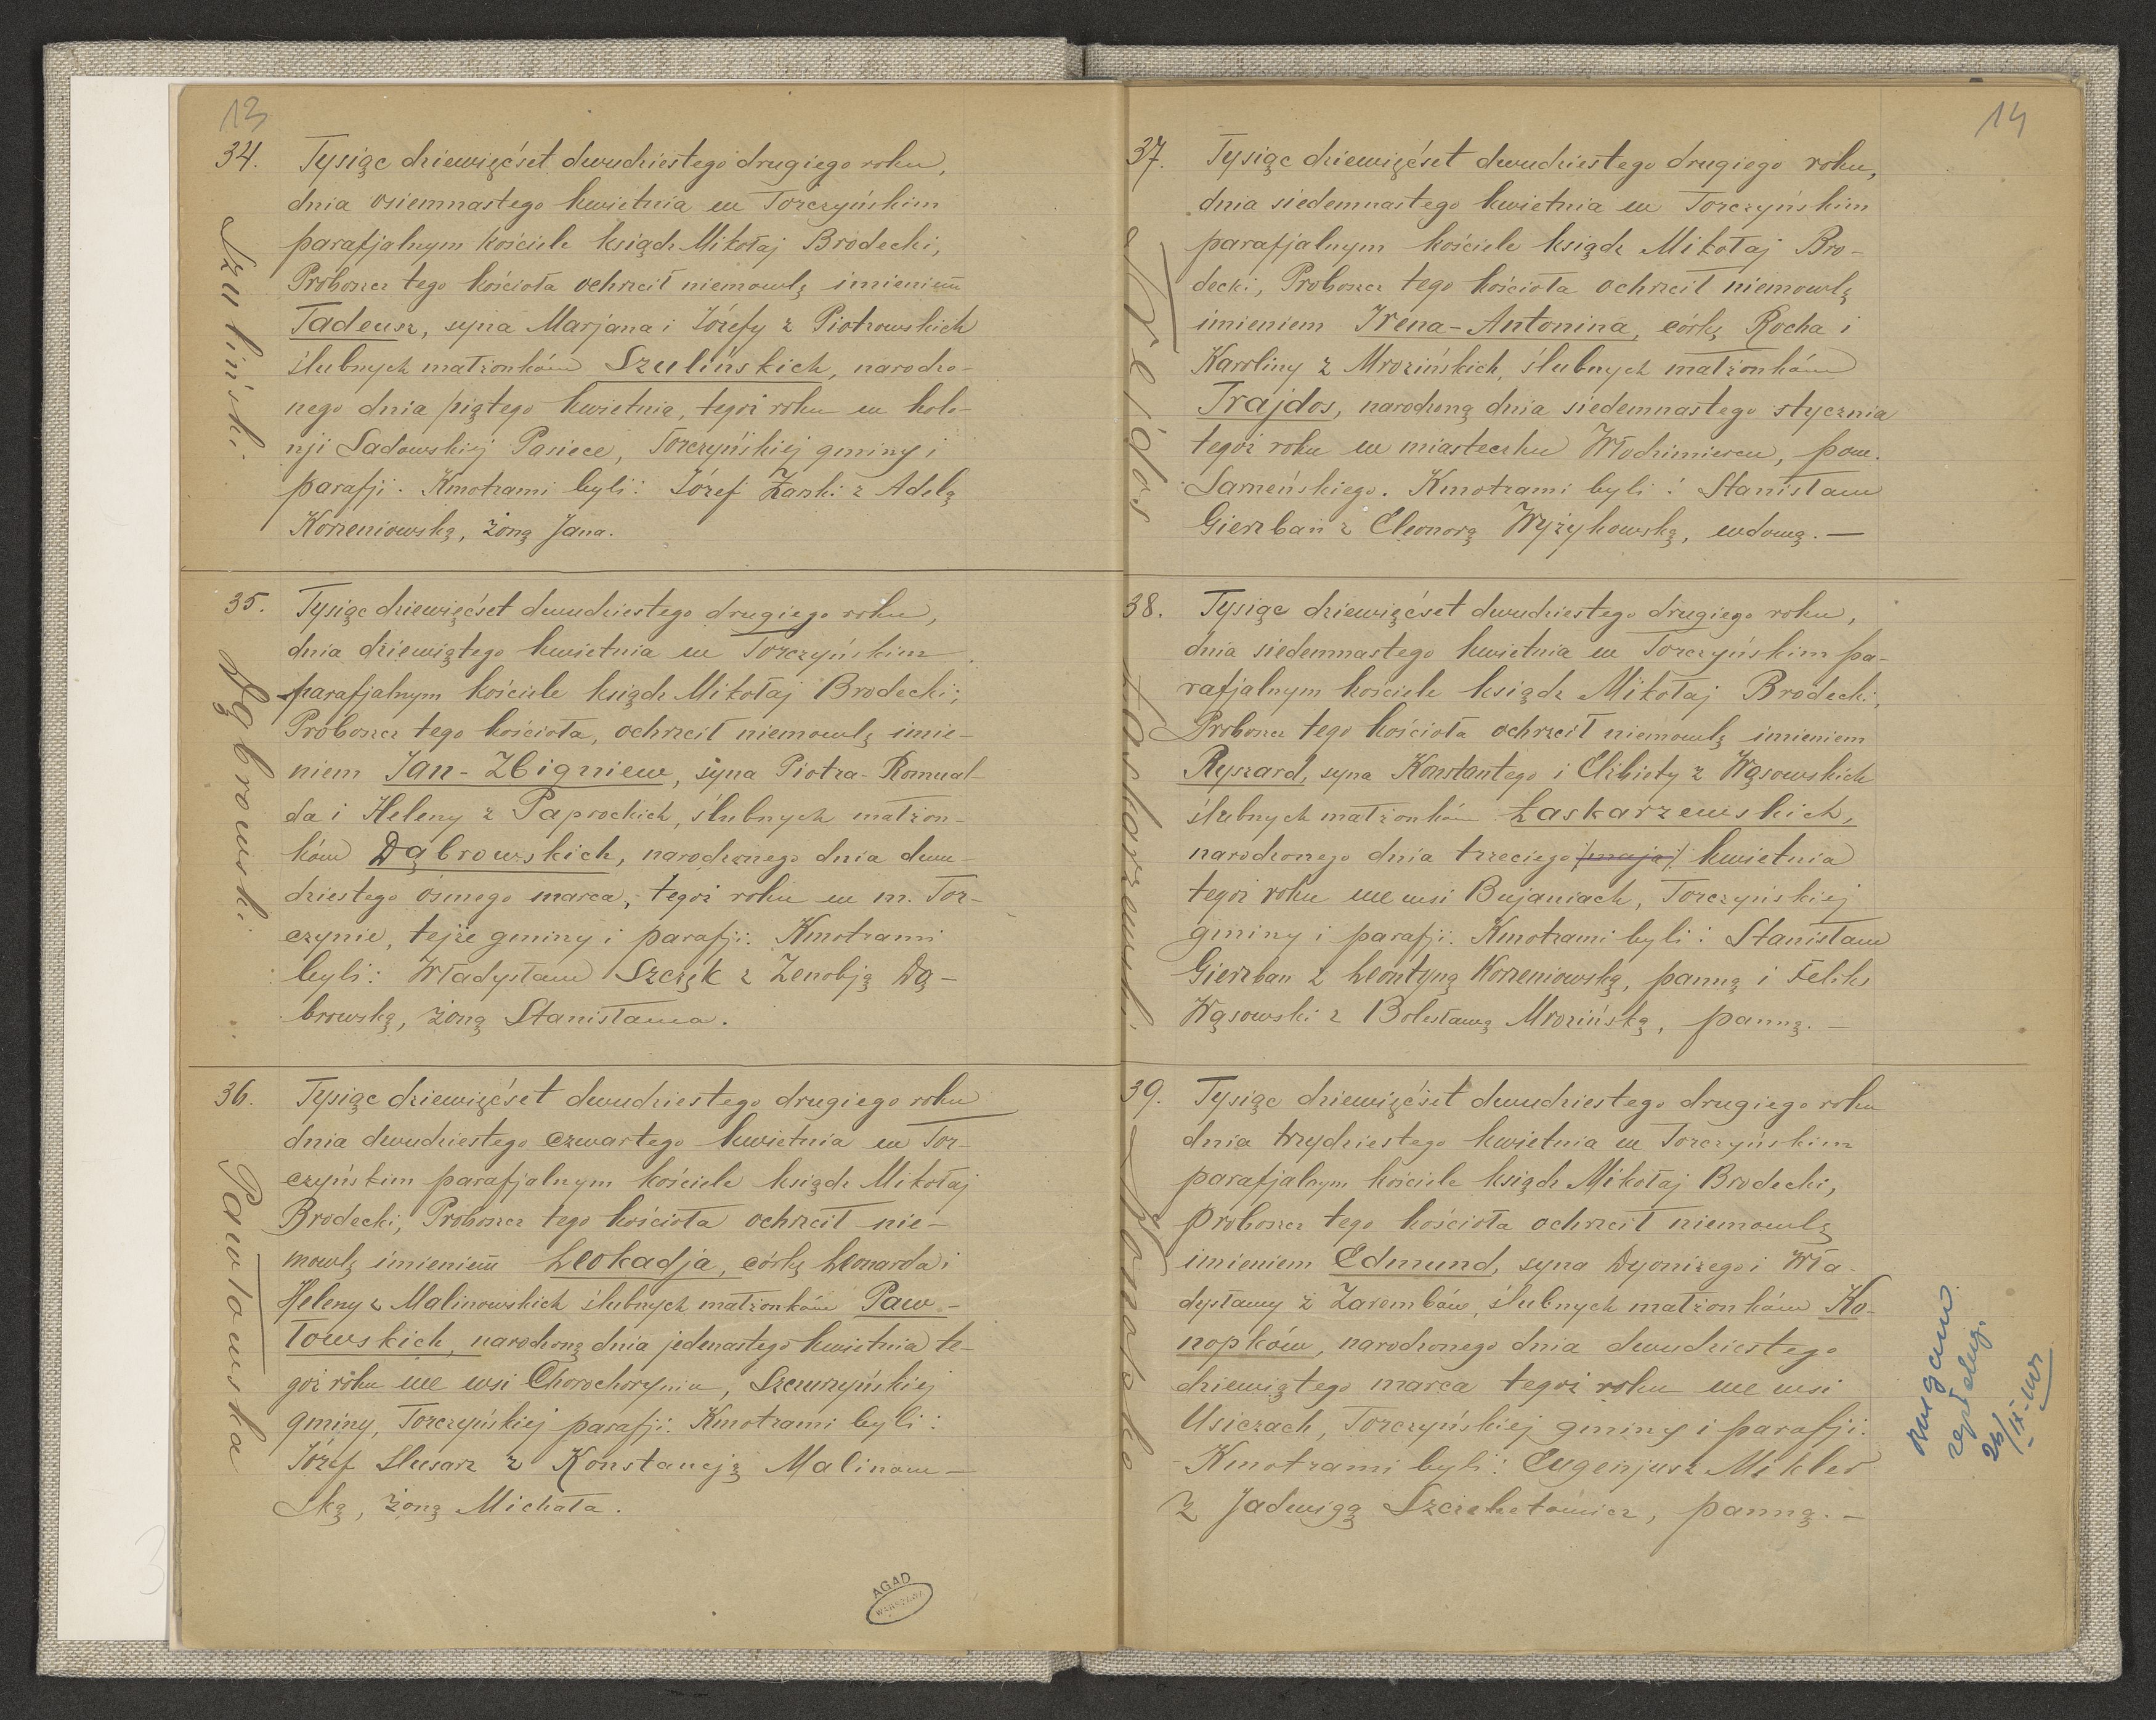 13
34.
Szuliński.
Tysiąc dziewięćset dwudziestego drugiego roku,
dnia osiemnastego kwietnia w Torczyńskim
parafjalnym kościele ksiądz Mikołaj Brodecki,
Proboszcz tego kościoła ochrzcił niemowlę imieniem
Tadeusz, syna Marjana i Józefy z Piotrowskich
ślubnych małżonków Szulińskich, narodzo-
nego dnia piątego kwietnia, tegoż roku w kolo-
nji Sadowskiej Pasiece, Torczyńskiej gminy i
parafji. Kmotrami byli: Józef Żarski z Adelą
Korzeniowską, żoną Jana.
35.
Dąbrowski.
Tysiąc dziewięćset dwudziestego drugiego roku,
dnia dziewiątego kwietnia w Torczyńskim
parafjalnym kościele ksiądz Mikołaj Brodecki,
Proboszcz tego kościoła, ochrzcił niemowlę imie-
niem Jan-Zbigniew, syna Piotra-Romual-
da i Heleny z Paprockich, ślubnych małżon-
ków Dąbrowskich, narodzonego dnia dwu-
dziestego ósmego marca, tegoż roku w m. Tor-
czynie, tejże gminy i parafji. Kmotrami
byli: Władysław Szczęk z Zenobją Dą-
browską, żoną Stanisława.
36.
Pawłowska
Tysiąc dziewięćset dwudziestego drugiego roku
dnia dwudziestego czwartego kwietnia w Tor-
czyńskim parafjalnym kościele ksiądz Mikołaj
Brodecki, Proboszcz tego kościoła ochrzcił nie-
mowlę imieniem Leokadja, córkę Leonarda i
Heleny z Malinowskich ślubnych małżonków Paw-
łowskich, narodzoną dnia jedenastego kwietnia te-
goż roku we wsi Chorochoryniu, Szczurzyńskiej
gminy, Torczyńskiej parafji. Kmotrami byli:
Józef Ślusarz z Konstancją Malinow-
ską, żoną Michała.
AGAD
WARSZAWA
14
37.
Trajdos
Tysiąc dziewięćset dwudziestego drugiego roku,
dnia siedemnastego kwietnia w Torczyńskim
parafjalnym kościele ksiądz Mikołaj Bro-
decki, Proboszcz tego kościoła ochrzcił niemowlę
imieniem Irena-Antonina, córkę Rocha i
Karoliny z Mrozińskich, ślubnych małżonków
Trajdos, narodzoną dnia siedemnastego stycznia
tegoż roku w miasteczku Włodzimiercu, pow.
Sarneńskiego. Kmotrami byli: Stanisław
Gierzban z Eleonorą Wyżykowską, wdową.—
38.
Łaskarzewski.
Tysiąc dziewięćset dwudziestego drugiego roku,
dnia siedemnastego kwietnia w Torczyńskim pa-
rafjalnym kościele ksiądz Mikołaj Brodecki,
Proboszcz tego kościoła ochrzcił niemowlę imieniem
Ryszard, syna Konstantego i Elżbiety z Wąsowskich
ślubnych małżonków Łaskarzewskich,
narodzonego dnia trzeciego /maja/ kwietnia
tegoż roku we wsi Bujaniach, Torczyńskiej
gminy i parafji. Kmotrami byli: Stanisław
Gierzban z Leontyną Korzeniowską, panną i Feliks
Wąsowski z Bolesławą Mrozińską, panną.—
39.
Konopka
Tysiąc dziewięćset dwudziestego drugiego roku
dnia trzydziestego kwietnia w Torczyńskim
parafjalnym kościele ksiądz Mikołaj Brodecki,
Proboszcz tego kościoła ochrzcił niemowlę
imieniem Edmund, syna Dyonizego i Wła-
dysławy z Zarembów, ślubnych małżonków Ko-
nopków, narodzonego dnia dwudziestego
dziewiątego marca tegoż roku we wsi
Usiczach, Torczyńskiej gminy i parafji.
Kmotrami byli: Eugenjusz Mikler
z Jadwigą Szczekotowicz, panną.—
26/IX